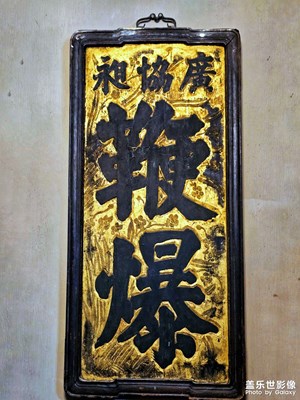 廣協昶
鞭爆
盖乐世影像
Photo by Galaxy